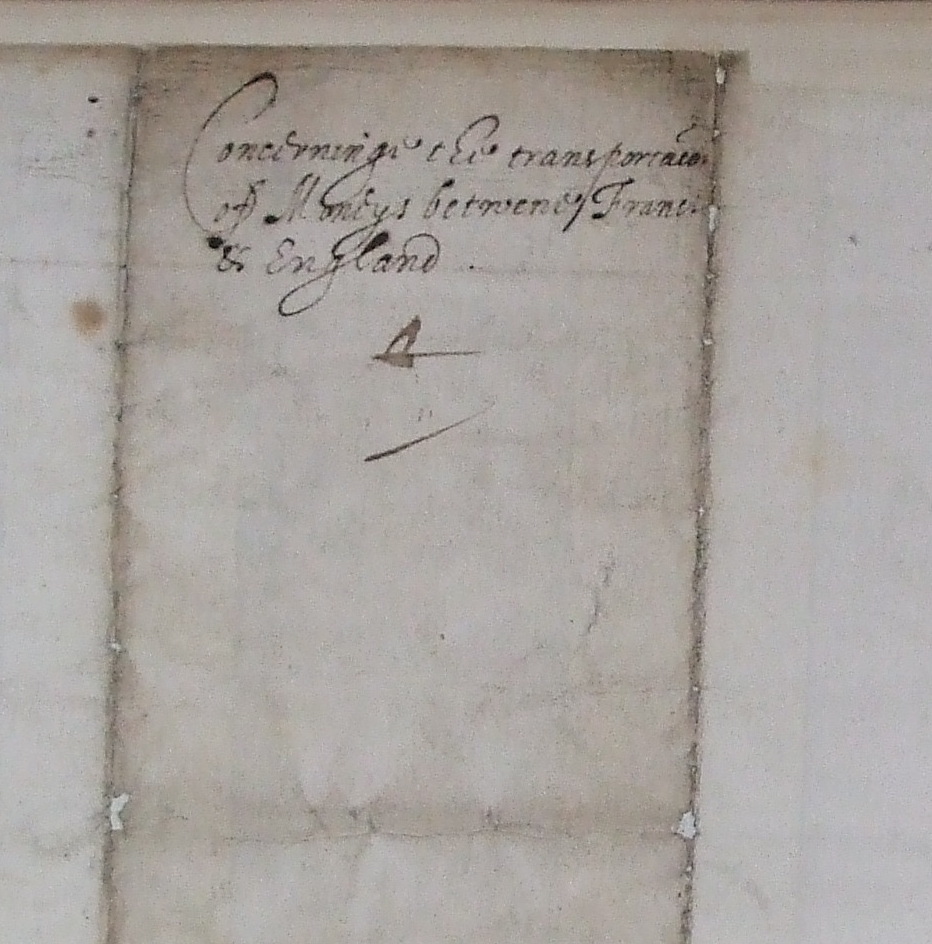 Concerninge the transportacon
of Moneys betweene France
& England